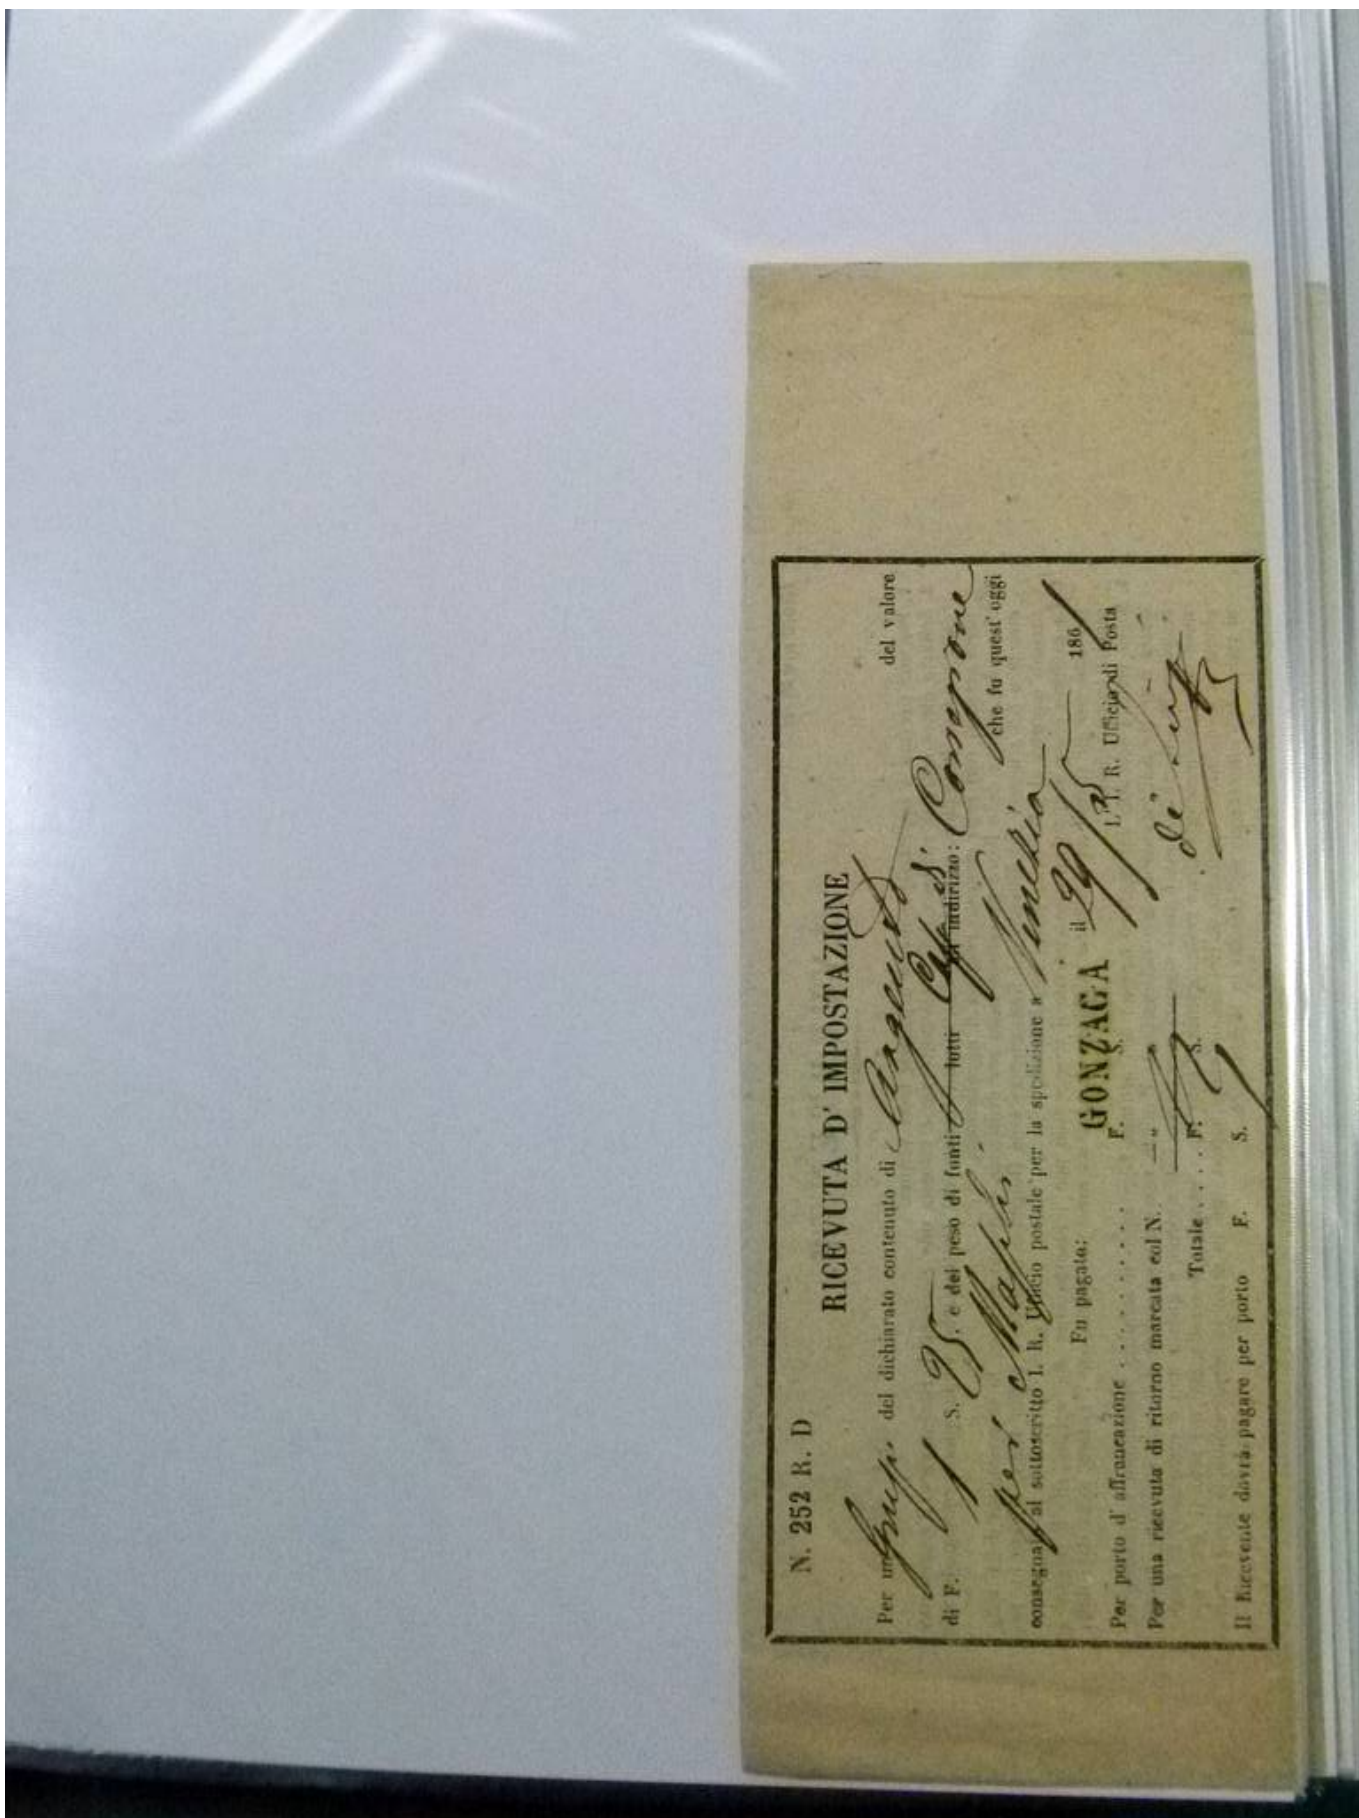 N. 252 R. D
RICEVUTA D' IMPOSTAZIONE
Per un Gruppo del dichiarato contenuto di Argento del valore
di F. 1 S. 25, e del peso di funti lotti all' indirizzo:
per che fu quest' oggi
consegna al sottoscritto I. R. Ufficio postale per la spedizione a Venezia
GONZAGA il 29/5 1861
Fu pagato: L' I. R. Ufficio di Posta
Per porto d' affrancazione . . . . . . . . . F. S.
Per una ricevuta di ritorno marcata col N.
Totale . . . . . F. S.
Il Ricevente dovrà pagare per porto F. S.